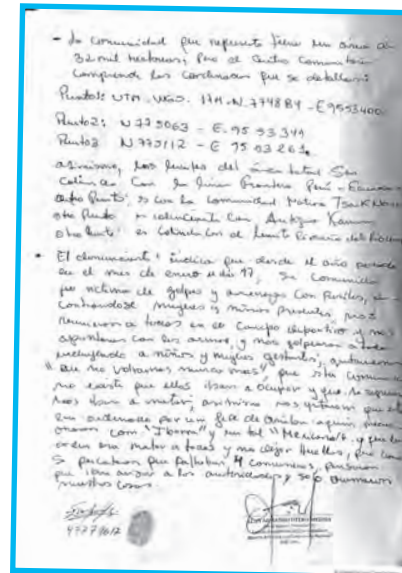 - La comunidad que represento tiene un área de
32 mil hectáreas; Pero el Centro Comunitario
comprende las cordenadas que se detallan:
Punto 1: UTM - WGS. 17M - N. 774884 - E 9553400
Punto 2: N 775063 - E. 95 53 349
Punto 3 N 775112 - E 95 53 26
asimismo, los límites del área total Son
Colinda Con la linea Frontera Perú - Ecuador
otro Punto, es con la comunidad Nativa
otro Punto es colindante Con Antiguo Kanam
otro Punto es Colinda con el Límite
• El denunciante indica que desde el año pasado
en el mes de enero el dia 17, Su Comunidad
fue victima de golpes y amenazas Con fusiles,
contrandose mujeres y niños presentes, nos
reunieron a todos en el Campo deportivo y nos
apuntaron con las armas, y nos golpearon a todos
incluyendo a niños y mujeres gestantes,
" que no volvamos nunca mas" que esta comunidad
no existe que ellos iban a ocupar y que
nos iban a matar, asimismo nos gritaron que
era ordenado por un jefe de
con "Ibarra" y un tal "Mexicano" y que la
orden era matar a todos y no dejar huellas, pero como
se percataron que faltaban 4 comuneros, pensaron
que iban avisar a las autoridades y solo quemaron
nuestras casas.